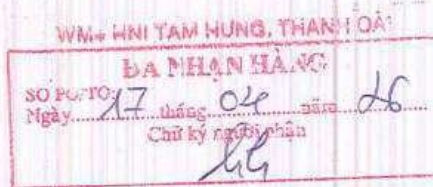 WM+ HNI TAM HUNG, THANH OAI
ĐA NHẬN HÀNG
SỐ PO/TO:
Ngày 17 tháng 04 năm 26
Chữ ký người nhận